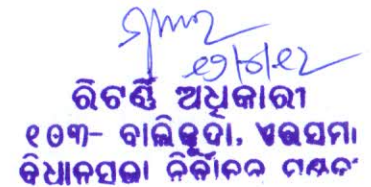 ରିଟର୍ଣ୍ଣିଂ ଅଧିକାରୀ
୧୦୩- ବାଲିକୁଦା, ଏରସମା
ବିଧାନସଭା ନିର୍ବାଚନ ମଣ୍ଡଳୀ